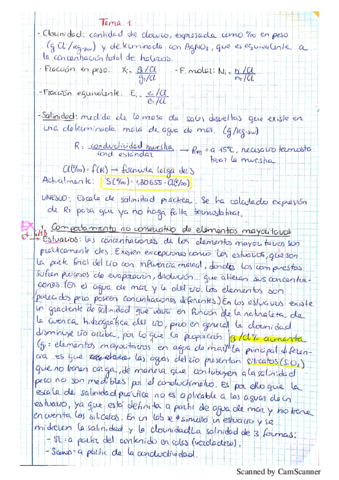 Tema 1
- Clorinidad: cantidad de cloruro, expresada como ‰ en peso
(g Cl/kg sw) y determinada con AgNO3, que es equivalente a
la concentración total de haluros.
- Fracción en peso: Xi = gi/Cl - F. molar: Ni = ni/Cl
- Fracción equivalente: Ei = ei/Cl
- Salinidad: medida de la masa de sales disueltas que existe en
una determinada masa de agua de mar. (g/kg sw)
R = conductividad muestra / cond estándar → R15 = a 15ºC, necesario termosta
tizar la muestra
Cl(‰) = f(R) → fórmula larga de S
Actualmente: S(‰) = 1.80655 · Cl(‰)
UNESCO: Escala de salinidad práctica. Se ha calculado expresión
de Rt para que ya no haga falta termostatizar.
1. Comportamiento no conservativo de elementos mayoritarios
Estuarios: las concentraciones de los elementos mayoritarios son
prácticamente ctes. Existen excepciones como los estuarios, que son
la parte final del río con influencia marina, donde los compuestos
sufren procesos de evaporación, disolución... que alteran sus concentra-
ciones (en el agua de mar y la del río los elementos son
parecidos pero poseen concentraciones diferentes). En los estuarios existe
un gradiente de salinidad que varía en función de la naturaleza de
la cuenca hidrográfica del río, pero en general la clorinidad
disminuye río arriba, por lo que la proporción g/Cl‰ aumenta
(g = elementos mayoritarios en agua de mar). La principal diferen-
cia es que las aguas del río presentan silicatos (SiO2)
que no tienen carga, de manera que contribuyen a la salinidad
pero no son medibles por el conductímetro. Es por ello que la
escala de salinidad práctica no es aplicable a las aguas de un
estuario, ya que está definida a partir de agua de mar y no tiene
en cuenta los silicatos. En los se simuló un estuario y se
midieron la salinidad y la clorinidad. La salinidad de 3 formas:
- ST: a partir del contenido en sales (verdadera).
- Scond: a partir de la conductividad.
Scanned by CamScanner